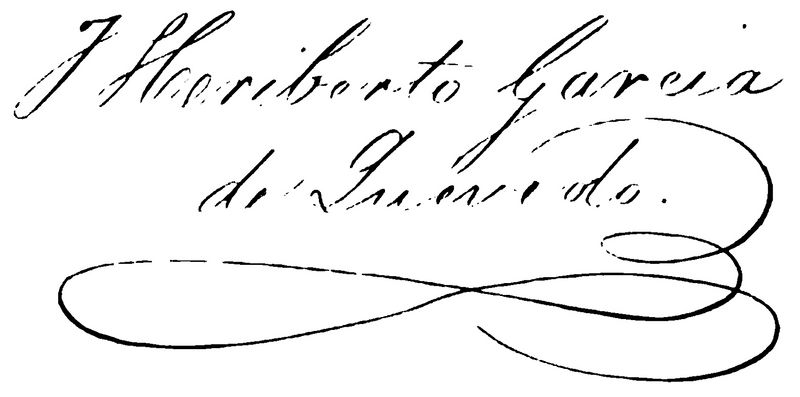 J Heriberto Garcia
de Quevedo.